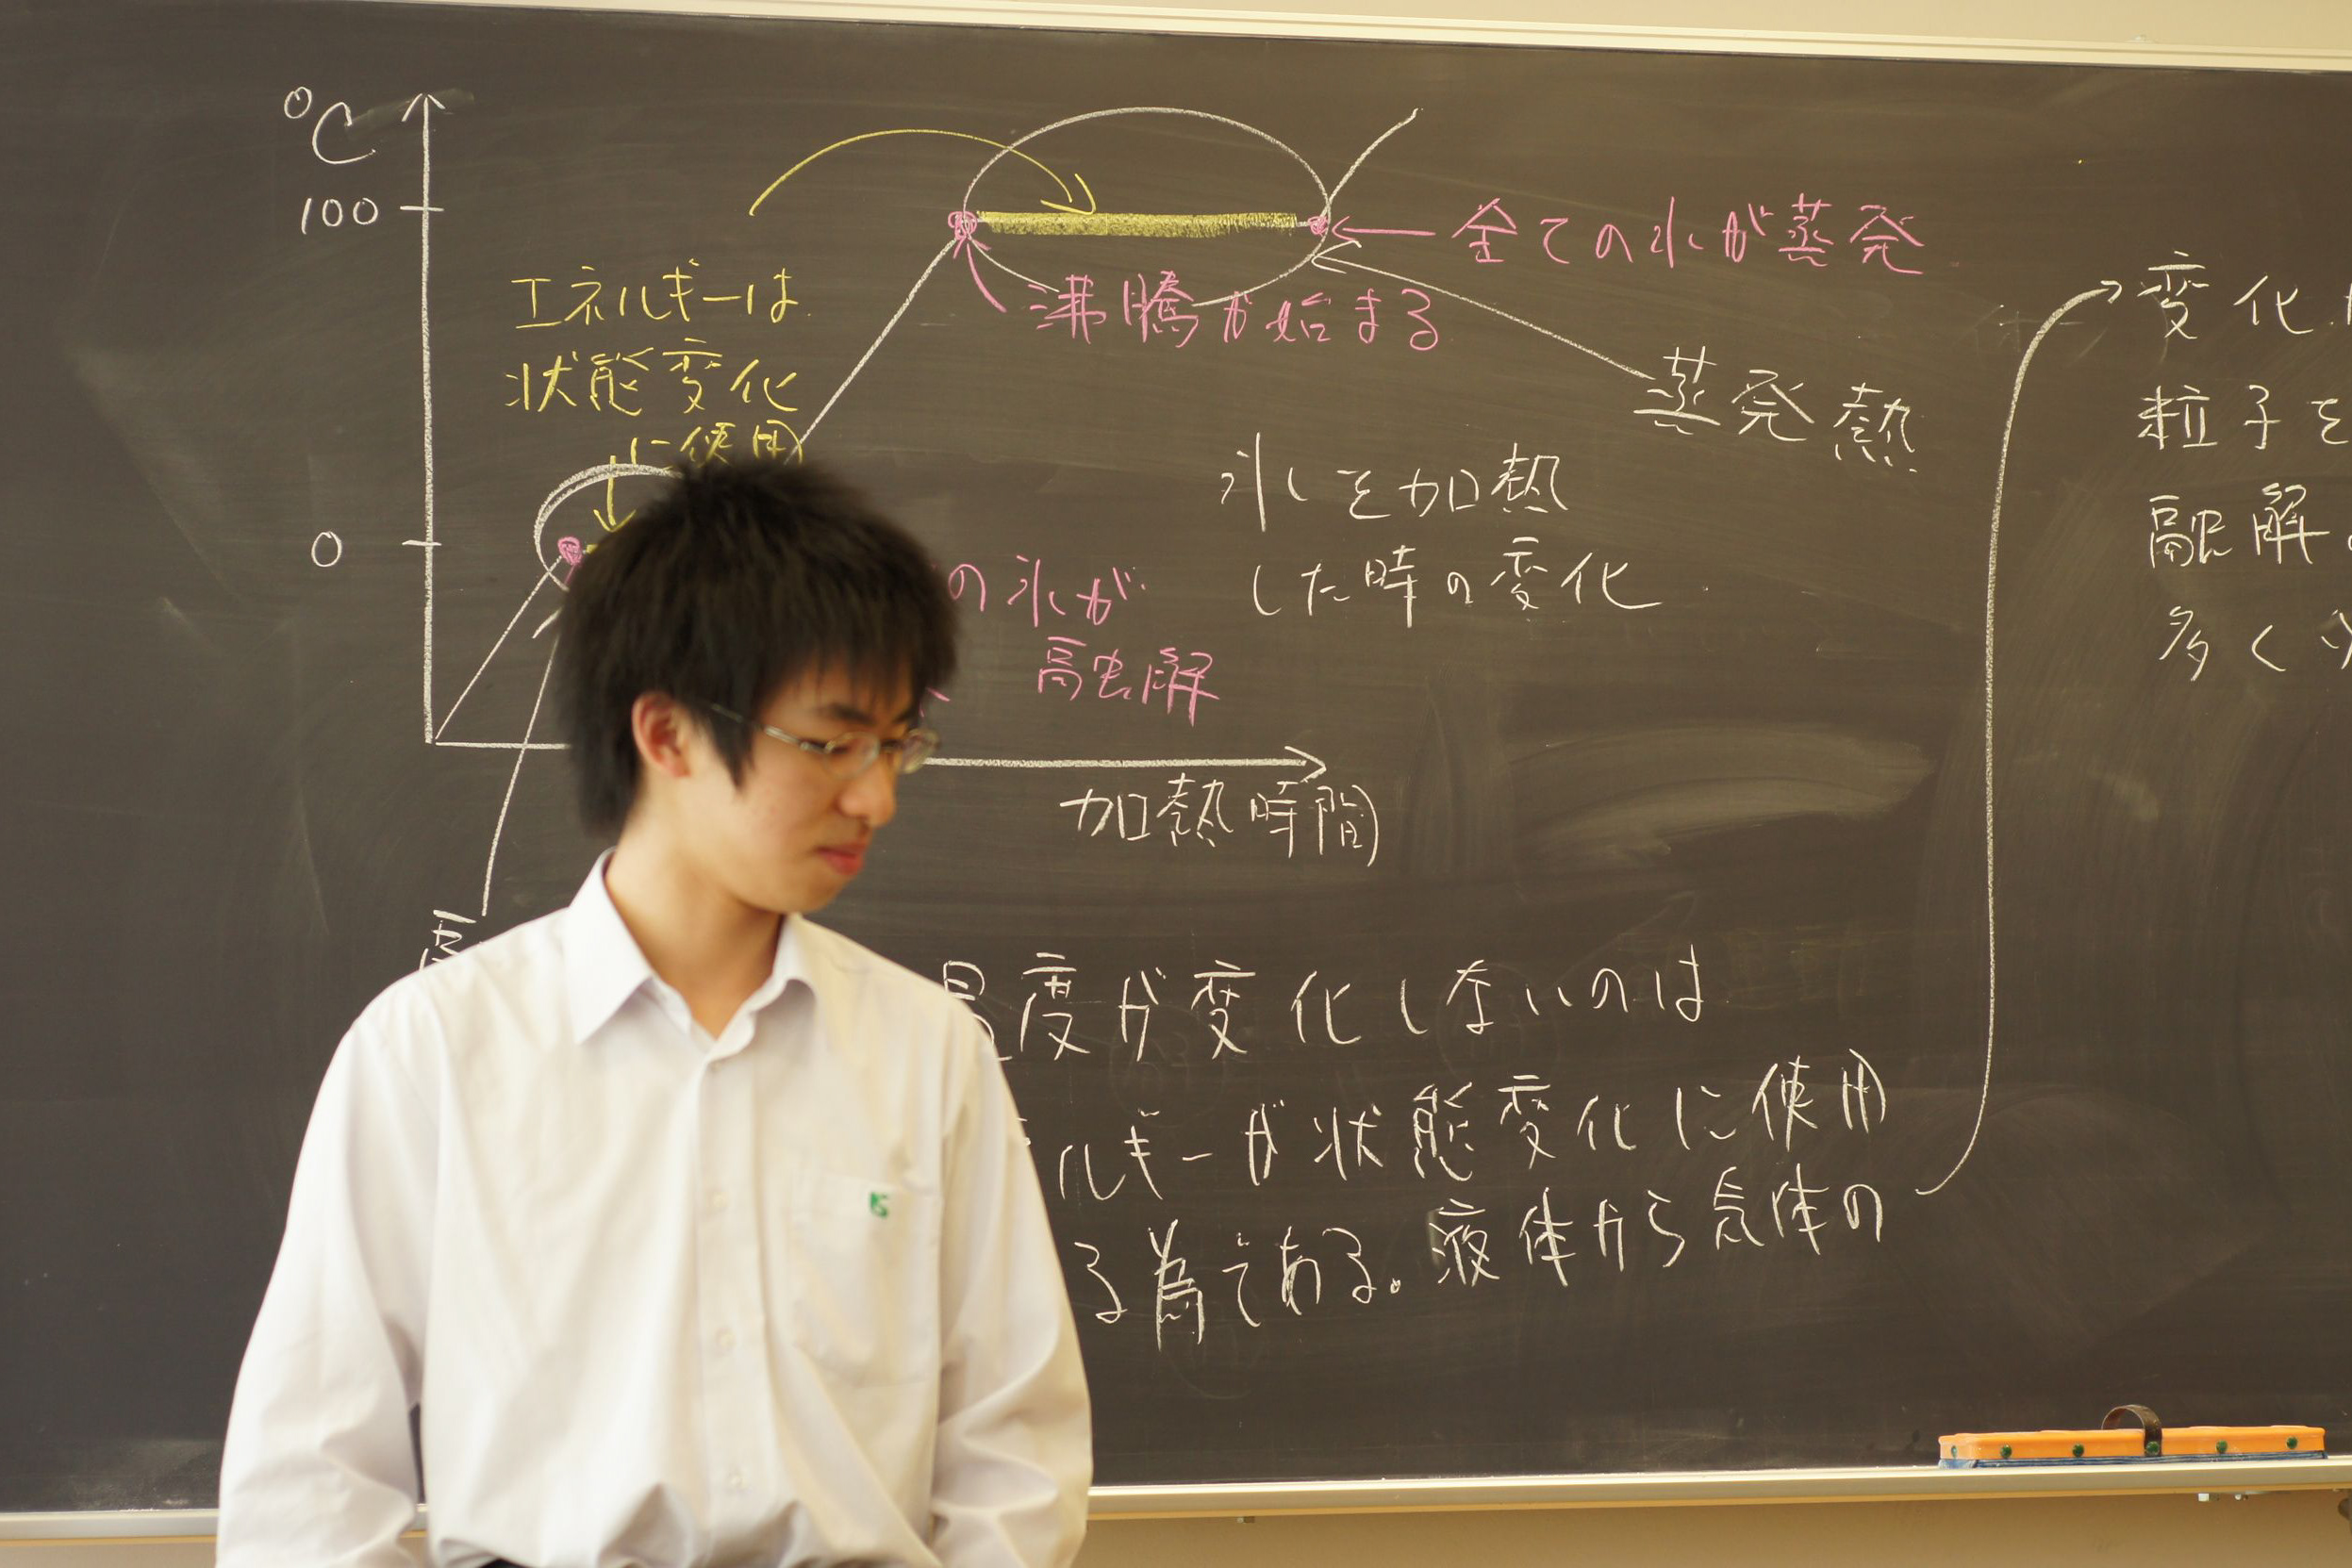 ℃
100
全ての水が蒸発
エネルギーは
沸騰が始まる
状態変化
蒸発熱
に使用
氷を加熱
0
の氷が
した時の変化
融解
加熱時間
度が変化しないのは
ルギーが状態変化に使用
る為である。液体から気体の
変化
粒子を
融解
多く